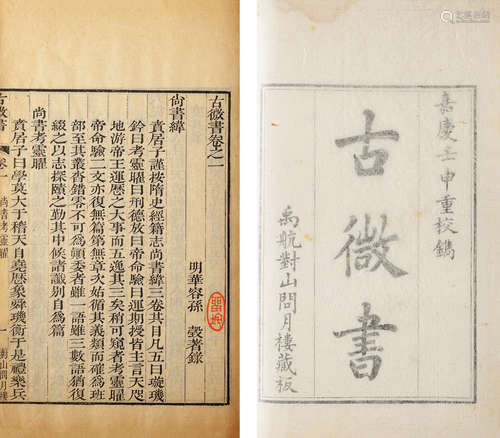 嘉慶壬申重校鐫
古微書
禹航對山問月樓藏板
古微書卷之一
明華容孫 瑴著錄
尚書緯
賁居子謹按隋史經籍志尚書緯三卷其目凡五曰璇璣
鈐曰考靈曜曰刑德放曰帝命驗曰運期授皆主言天咫
地游帝王運歷之大事而五逸其三矣稍可窺者考靈曜
帝命驗二文亦復無篇第無章次始循其義類而確為班
部至其叢沓錯零不可為頓委者雖一語雖三數語猶復
綴之以志探賾之勤其中候諸讖別自為篇
尚書考靈曜
賁居子曰學莫大于稽天自堯歷象舜璣衡于是禮樂兵
古微書 卷一 尚書考靈曜 一 對山問月樓